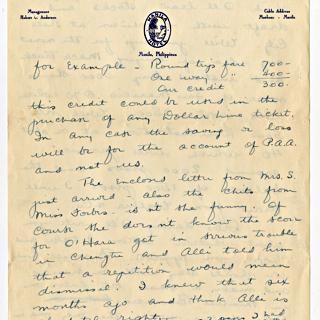 Management
Robert L. Anderson
MANILA HOTEL
Cable Address
Manhotel - Manila
Manila, Philippines
for Example - Round trip fare 700-
One way " 400-
Our credit 300-
this credit could be used in the
purchase of any Dollar Line ticket.
In any case the saving or loss
will be for the account of P.A.A.
and not us.
The Enclosed letter from Mrs. S.
just arrived - also the chits from
Miss Forbes - isn't she funny. Of
course she doesn't know the score
for O'Hara got in serious trouble
in Chengtu and Alli told him
that a repetition would mean
dismissal. I knew that six
months ago and think Alli is
years I had